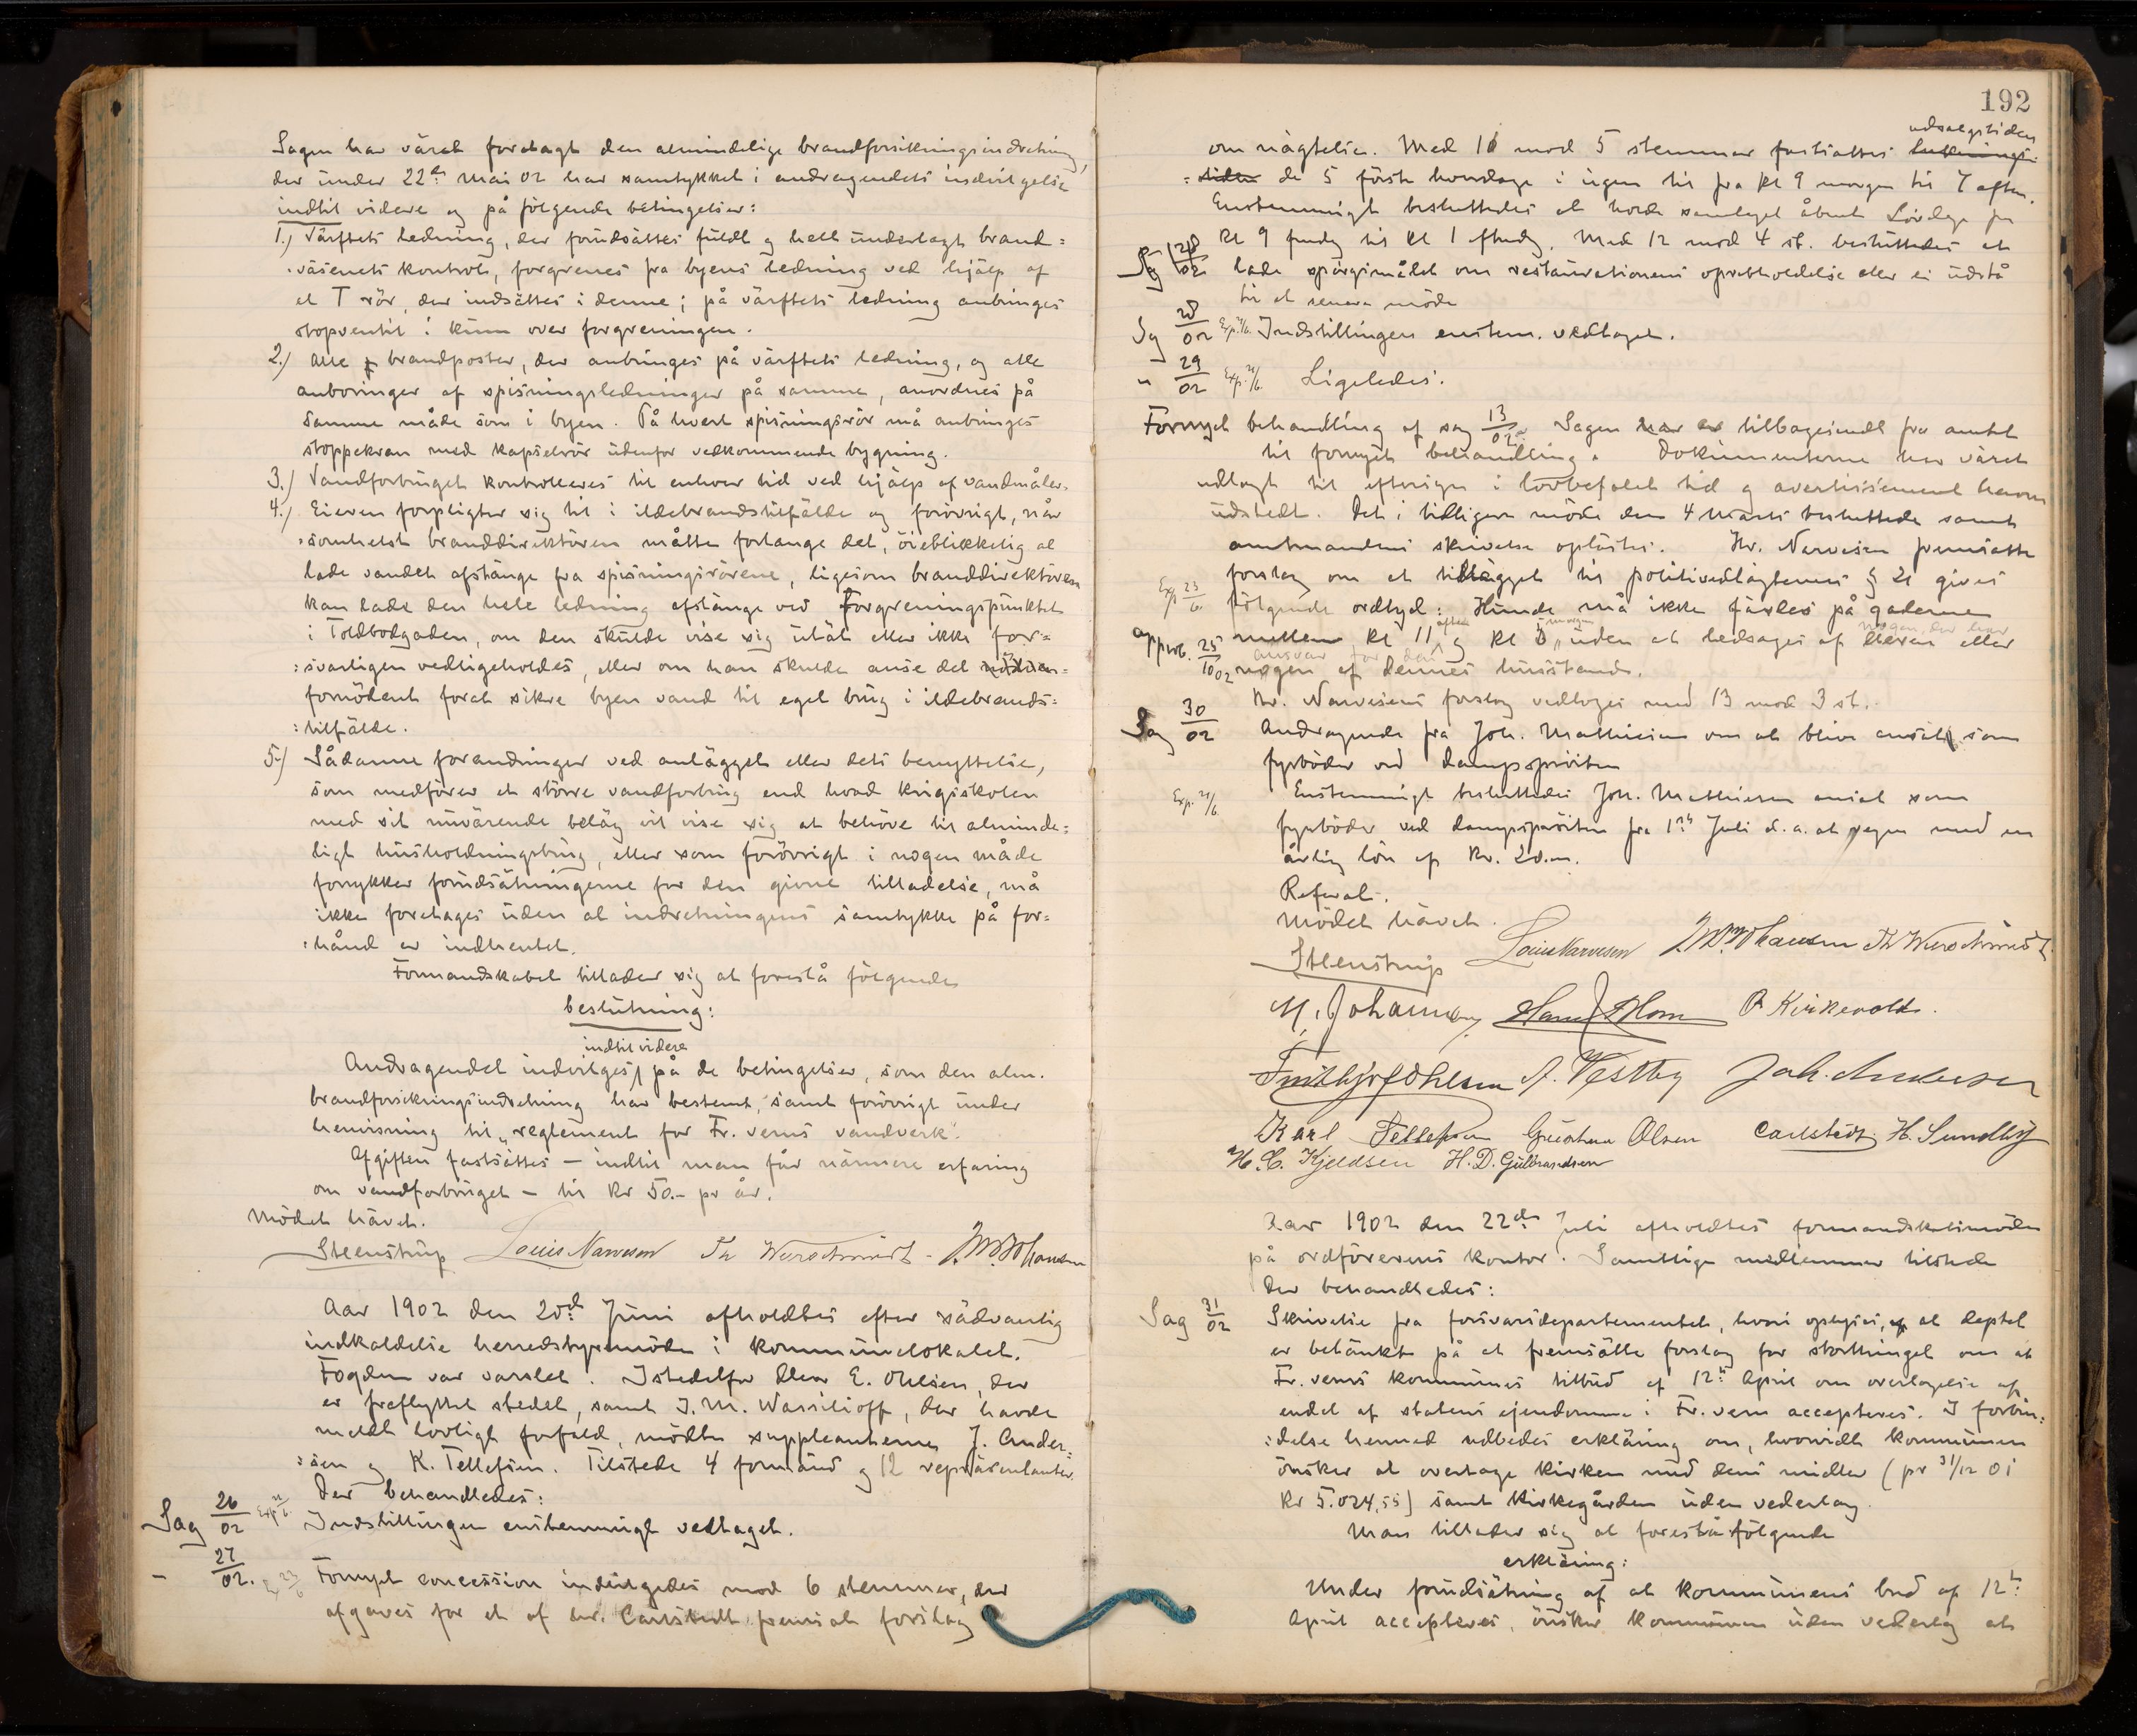 Sagen har väret foretagt den almindelige brandforsikringsindretning,
der under 22de Mai 02 har samtykket i andragendets indvilgelse
indtil videre og på fölgende betingelser:
1.) Värftets ledning, der forudsättes fuldt og helt underlagt brand=
:väsenets kontrol, forgrenes fra byens ledning ved hjälp af
et T rör, der indsättes i denne; på värftets ledning anbringes
stopventil i kum over forgreningen.
2.) Alle brandposter, der anbringes på värftets ledning, og alle
anboringer af spisningsledninger på samme, anordnes på
samme måde som i byen. På hvert spisningsrör må anbringes
stoppekran med kapselrör udenfor vedkommende bygning.
3.) Vandforbruget kontrolleres til enhver tid ved hjälp af vandmåler.
4.) Eieren forpligter sig til i ildebrandstilfälde og forövrigt, når
:somhelst branddirektören måtte forlange det, öieblikkelig at
lade vandet afstänge fra spisningsrörene, ligesom branddirektören
kan lade den hele ledning afstänge ved Forgreningspunktet
i Toldbodgaden, om den skulde vise sig utät eller ikke for=
:svarligen vedligeholdes, eller om han skulde anse det
fornödent forat sikre byen vand til eget brug i ildebrands=
:tilfälde.
5.) Sådanne forandringer ved anlägget eller dets benyttelse,
som medförer et större vandforbrug end hvad krigsskolen
med sit nuvärende beläg vil vise sig at behöve til alminde=
ligt husholdningsbrug, eller som forövrigt i nogen måde
forrykker forudsätningerne for den givne tilladelse, må
ikke foretages uden at indretningens samtykke på for=
:hånd er indhentet.
Formandskabet tillader sig at foreslå fölgende
beslutning:
indtil videre
Andragendet indvilges på de betingelser, som den alm.
brandforsikringsindretning har bestemt, samt forövrigt under
henvisning til „reglement for Fr. verns vandverk".
Afgiften fastsättes – indtil man får närmere erfaring
om vandforbruget – til Kr 50.- pr år.
Mödet hävet.
Steenstrup Louis Narvesen Th Wurschmidt - J.M. Johansen
Aar 1902 den 20de Juni afholdtes efter sädvanlig
indkaldelse herredstyremöde i kommunelokalet.
Fogden var varslet. Istedetfor Elvar E. Ohlsen, der
er fraflyttet stedet, samt J. M. Wassilioff, der havde
meldt lovligt forfald, mödte suppleanterne J. Ander=
:sen og K. Tellefsen. Tilstede 4 formänd og 12 repräsentanter.
Der behandledes:
Sag 26/02 Exp Indstillingen enstemmigt vedtaget.
- 27/02. Fornyet concession indvilgedes mod 6 stemmer, der
afgaves for et af hr. Carlstedt fremsat forslag
192
om nägtelse. Med 11 mod 5 stemmer fastsattes udsalgstiden
de 5 förste hverdage i ugen til fra kl 9 morgen til 7 aften.
Enstemmigt besluttedes at holde samlaget åbent Lördage fra
kl 9 fmdg til kl 1 eftmdg. Med 12 mod 4 st. besluttedes at
lade spörgsmålet om restaurationens oprethholdelse eller ei udstå
til et senere möde
Sag 28/02 Exp. Indstillingen enstem. vedtaget.
" 29/02 Exp. Ligeledes.
Fornyet behandling af sag 13/02. Sagen er tilbagesendt fra amtet
til fornyet behandling. Dokumenterne har väret
udlagt til eftersyn i lovbefalet tid og avertissement herom
udstedt. Det i tidligere möde den 4 Marts besluttede samt
amtmandens skrivelse oplästes. Hr. Narvesen fremsatte
forslag om at tillägget til politivedtägternes § 21 gives
Exp. 23/6 fölgende ordlyd: Hunde må ikke färdes på gaderne
mellem kl 11 aften og kl 5 morgen uden at ledsages af eieren eller
nogen, der har ansvar for den
approb. 25/10 02 nogen af dennes husstand.
Hr. Narvesens forslag vedtoges med 13 mod 3 st.
Sag 30/02 Andragende fra Joh. Mathiesen om at blive ansat som
fyrböder ved dampspröiten
Exp. 21/6. Enstemmigt besluttedes Joh. Mathiesen ansat som
fyrböder ved dampspröiten fra 1ste Juli d. a. at regne med en
årlig lön af Kr. 20.-.
Referat.
Mödet hävet.
Steenstrup Louis Narvesen J.M. Johansen Th Wurschmidt
M. Johannesen Hans Blom O Kirkevold.
Frithjof Ohlsen A. Vestby Joh. Andersen
Karl Tellefsen Gustav Olsen Carlstedt H. Sundby
H. C. Kjeldsen H. D. Gulbrandsen
Aar 1902 den 22de Juli afholdtes formandskabsmöde
på ordförerens kontor. Samtlige medlemmer tilstede
Der behandledes:
Sag 31/02 Skrivelse fra forsvarsdepartementet, hvori oplyses, at deptet
er betänkt på at fremsätte forslag for storthinget om at
Fr. verns kommunes tilbud af 12te April om overtagelse af
endel af statens ejendomme i Fr. vern accepteres. I forbin=
:delse hermed udbedes erkläring om, hvorvidt kommunen
önsker at overtage kirken med dens midler (pr 31/12 01
Kr 5.024,55) samt kirkegården uden vederlag.
Man tillader sig at foreslå fölgende
erkläring:
Under forudsätning af at kommunens bud af 12te
April accepteres, önsker kommunen uden vederlag at